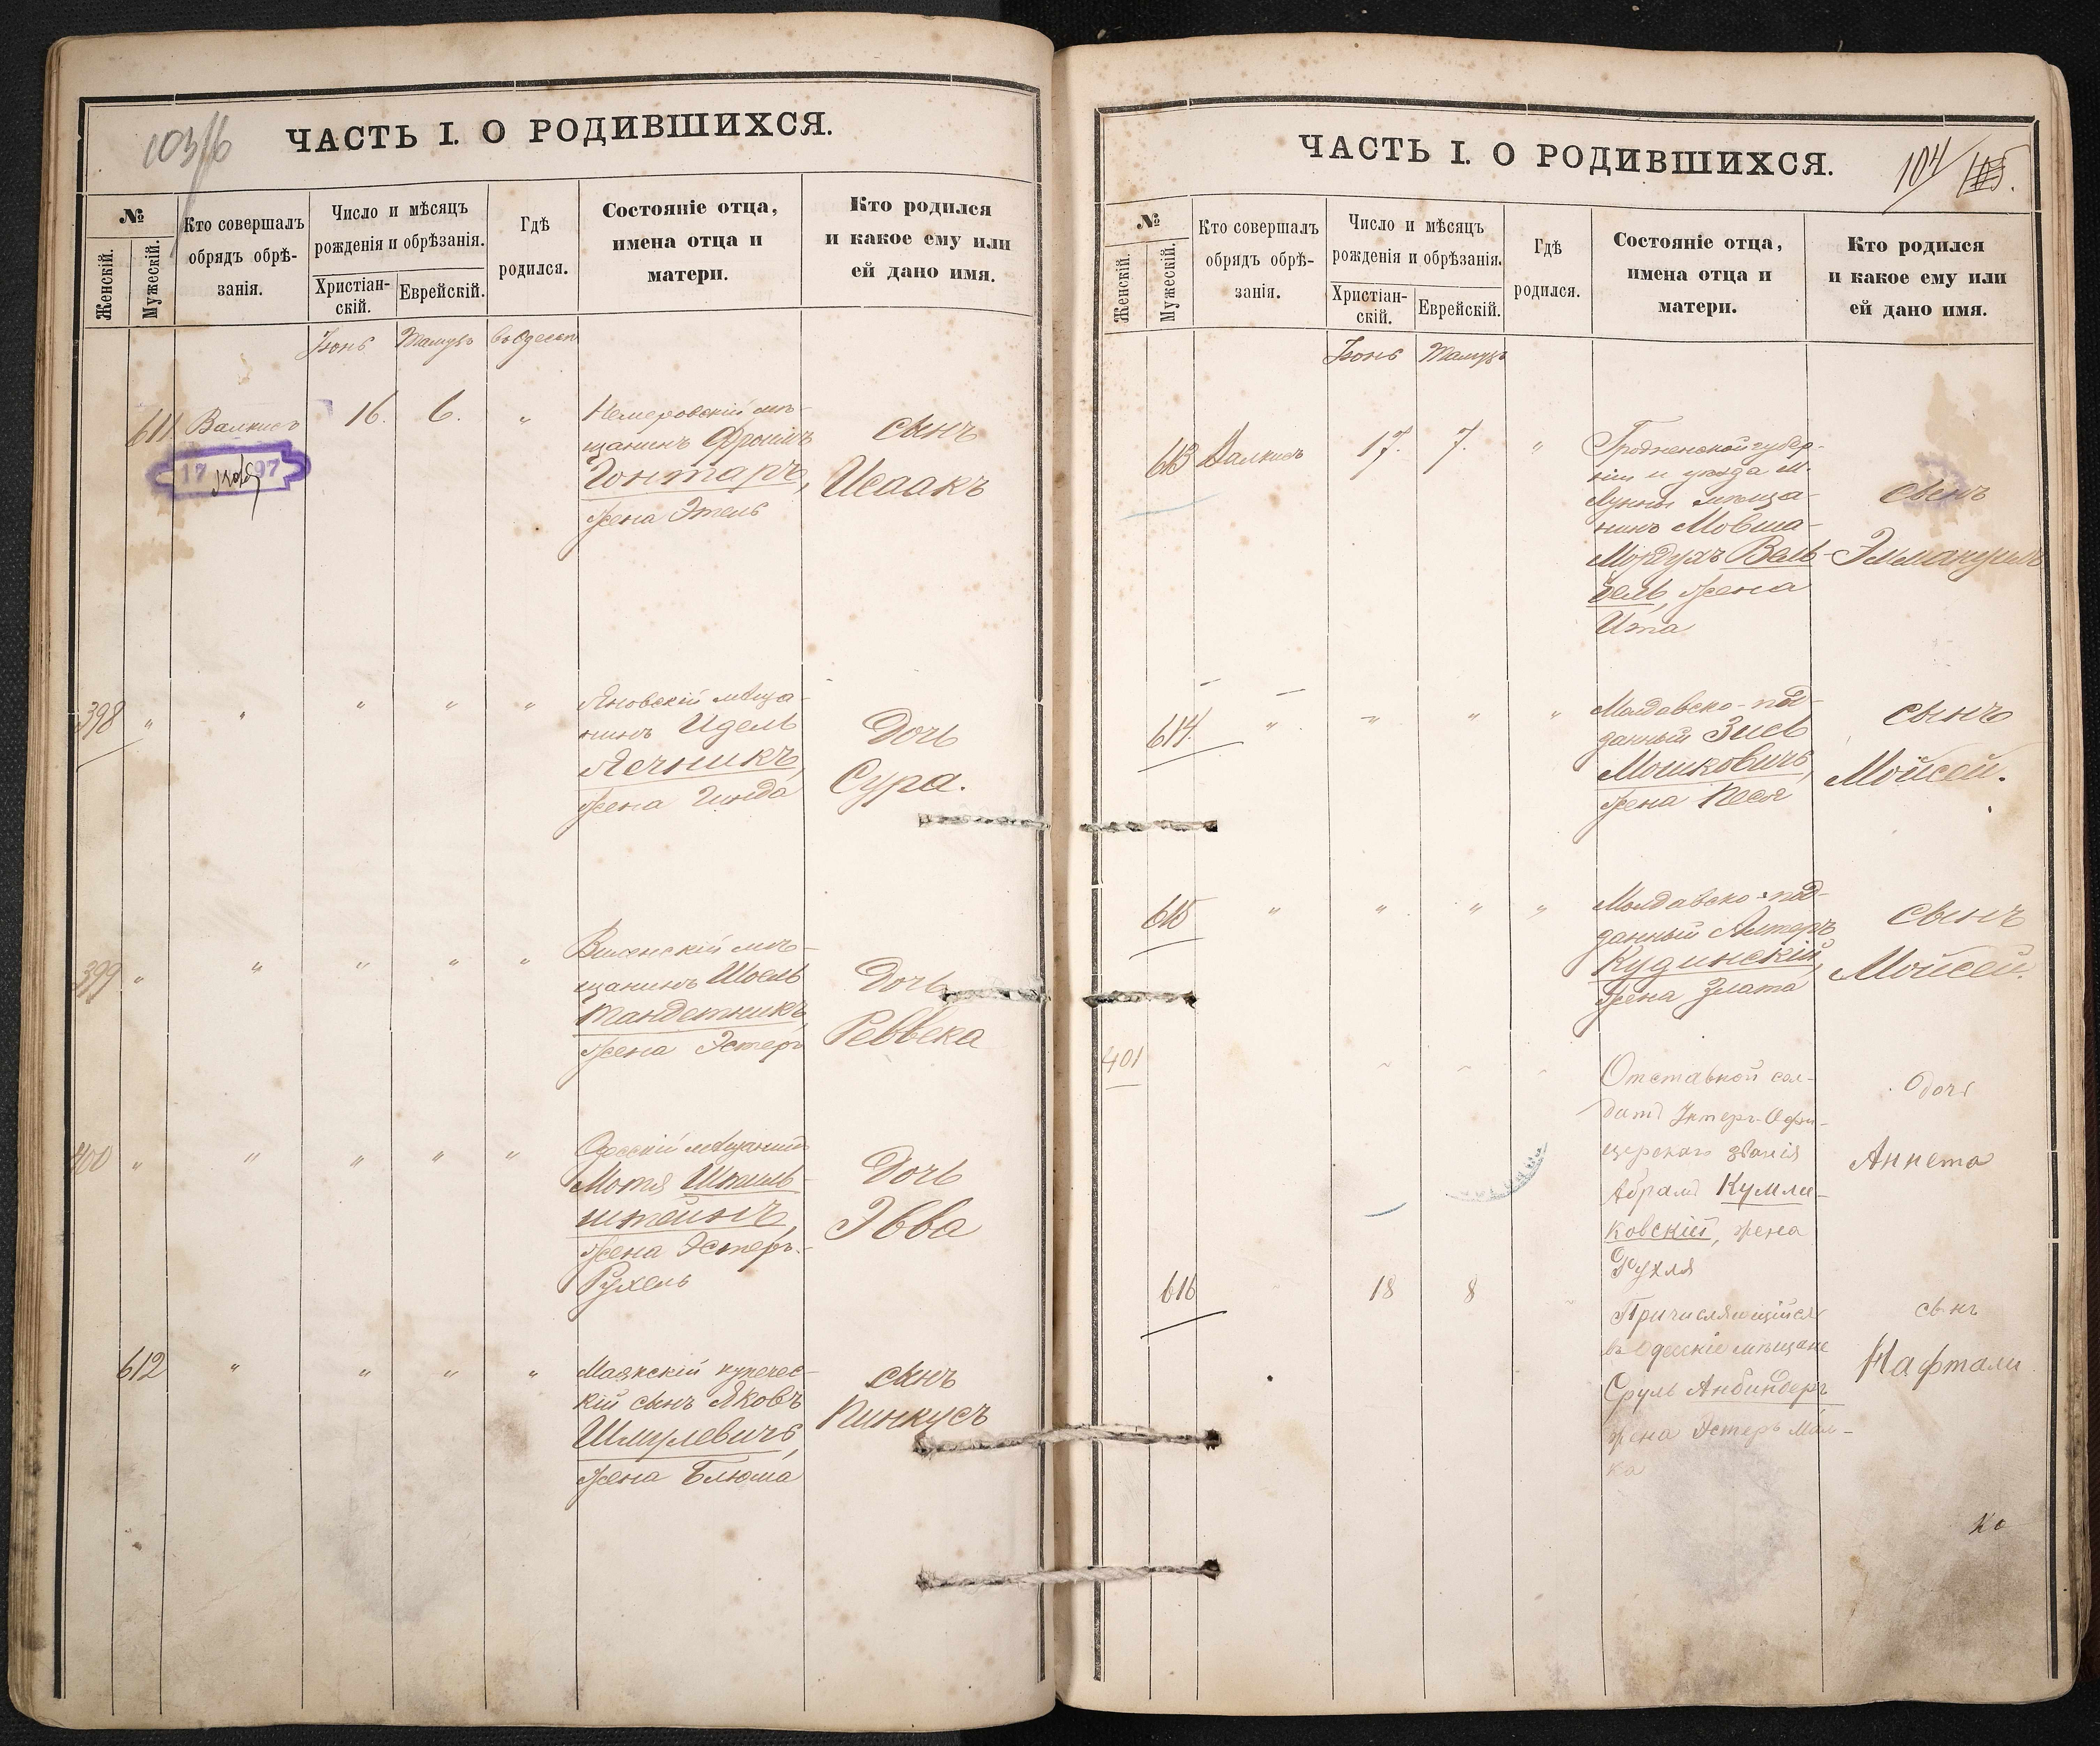 103/6
ЧАСТЬ I. О РОДИВШИХСЯ.
№
Женскій.
Мужескій.
Кто совершалъ
обрядъ обрѣ-
занія.
Число и мѣсяцъ
рожденія и обрѣзанія.
Христіан-
скій.
Еврейскій.
Гдѣ
родился.
Состояніе отца,
имена отца и
матери.
Кто родился
и какое ему или
ей дано имя.
Іюнь Тамузъ въ Одессѣ
611. Валкисъ 16. 6. "
Немеровскій мѣ-
щанинъ Фроимъ
Гонтаръ,
жена Этель
сынъ
Исаакъ
17 97
398 " " " " "
Яновскій мѣща-
нинъ Идель
Ячникъ,
жена Гинда
Дочь
Сура.
399 " " " " "
Виленскій мѣ-
щанинъ Шоель
Тандетникъ,
жена Эстеръ
Дочь
Реввека
400 " " " " "
Одесскій мѣщанинъ
Мотя
штейнъ,
жена Эстеръ-
Рухель
Дочь
Эвва
612 " " " "
Маякскій купечес-
кій сынъ Яковъ
Шмулевичъ,
жена Блюма
сынъ
Пинкусъ
ЧАСТЬ I. О РОДИВШИХСЯ.
104/
№
Женскій.
Мужескій.
Кто совершалъ
обрядъ обрѣ-
занія.
Число и мѣсяцъ
рожденія и обрѣзанія.
Христіан-
скій.
Еврейскій.
Гдѣ
родился.
Состояніе отца,
имена отца и
матери.
Кто родился
и какое ему или
ей дано имя.
Іюнь Тамузъ
613 Валкисъ 17. 7. "
Гродненской губер-
ніи и уѣзда м.
Лунны мѣща-
нинъ Мовша-
Мордухъ Вель-
бель, жена
Ита
сынъ
Эммануилъ
614. " " " "
Молдавско-под-
данный Зись
Мошковичъ,
жена Песя
сынъ
Мойсей.
615 " " " "
Молдавско-под-
данный Алтеръ
Кудинскій,
жена Злата
сынъ
Мойсей.
401
Отставной сол-
датъ Унтеръ-Офи-
церскаго званія
Абрамъ Кумли-
ковскій, жена
Рухля
дочь
Аннета
616 18 8
Причисляющійся
въ Одесскіе мѣщане
Сруль Анбиндеръ
жена Эстеръ Мал-
ка
сынъ
Нафтали